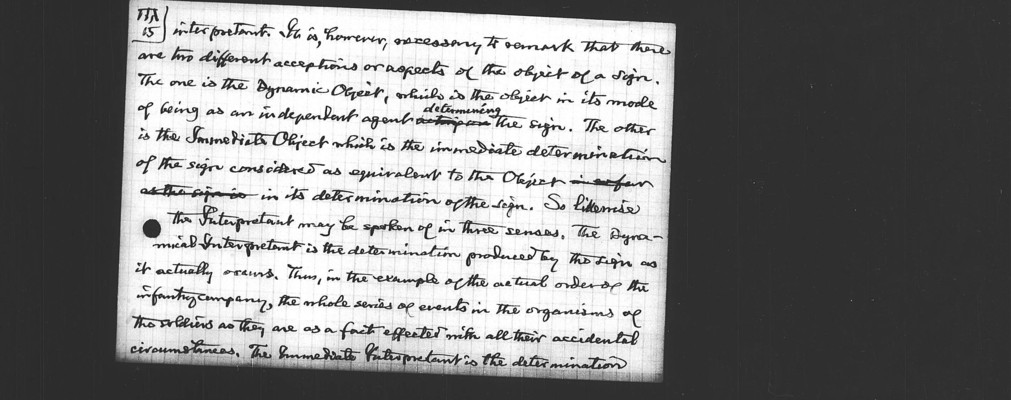 15
interpretant. It is, however, necessary to remark that there
are two different acceptions or aspects of the object of a sign.
The one is the Dynamic Object, which is the object in its mode
of being as an independent agent determining the sign. The other
is the Immediate Object which is the immediate determination
of the sign considered as equivalent to the Object in so far
as the sign is in its determination of the sign. So likewise
the Interpretant may be spoken of in three senses. The Dyna-
mical Interpretant is the determination produced by the sign as
it actually occurs. Thus, in the example of the actual order of the
infantry company, the whole series of events in the organisms of
the soldiers as they are as a fact effected with all their accidental
circumstances. The Immediate Interpretant is the determination